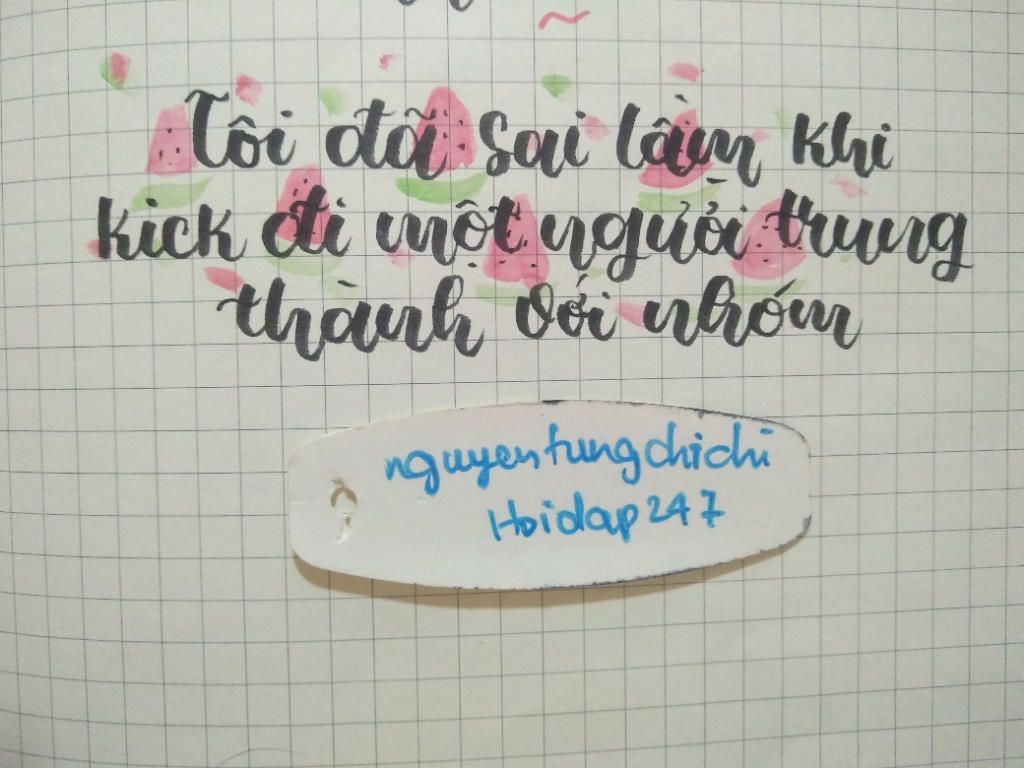 Tôi đã sai lầm khi
kick đi một người trung
thành với nhóm
nguyentungchichi
Hoidap247